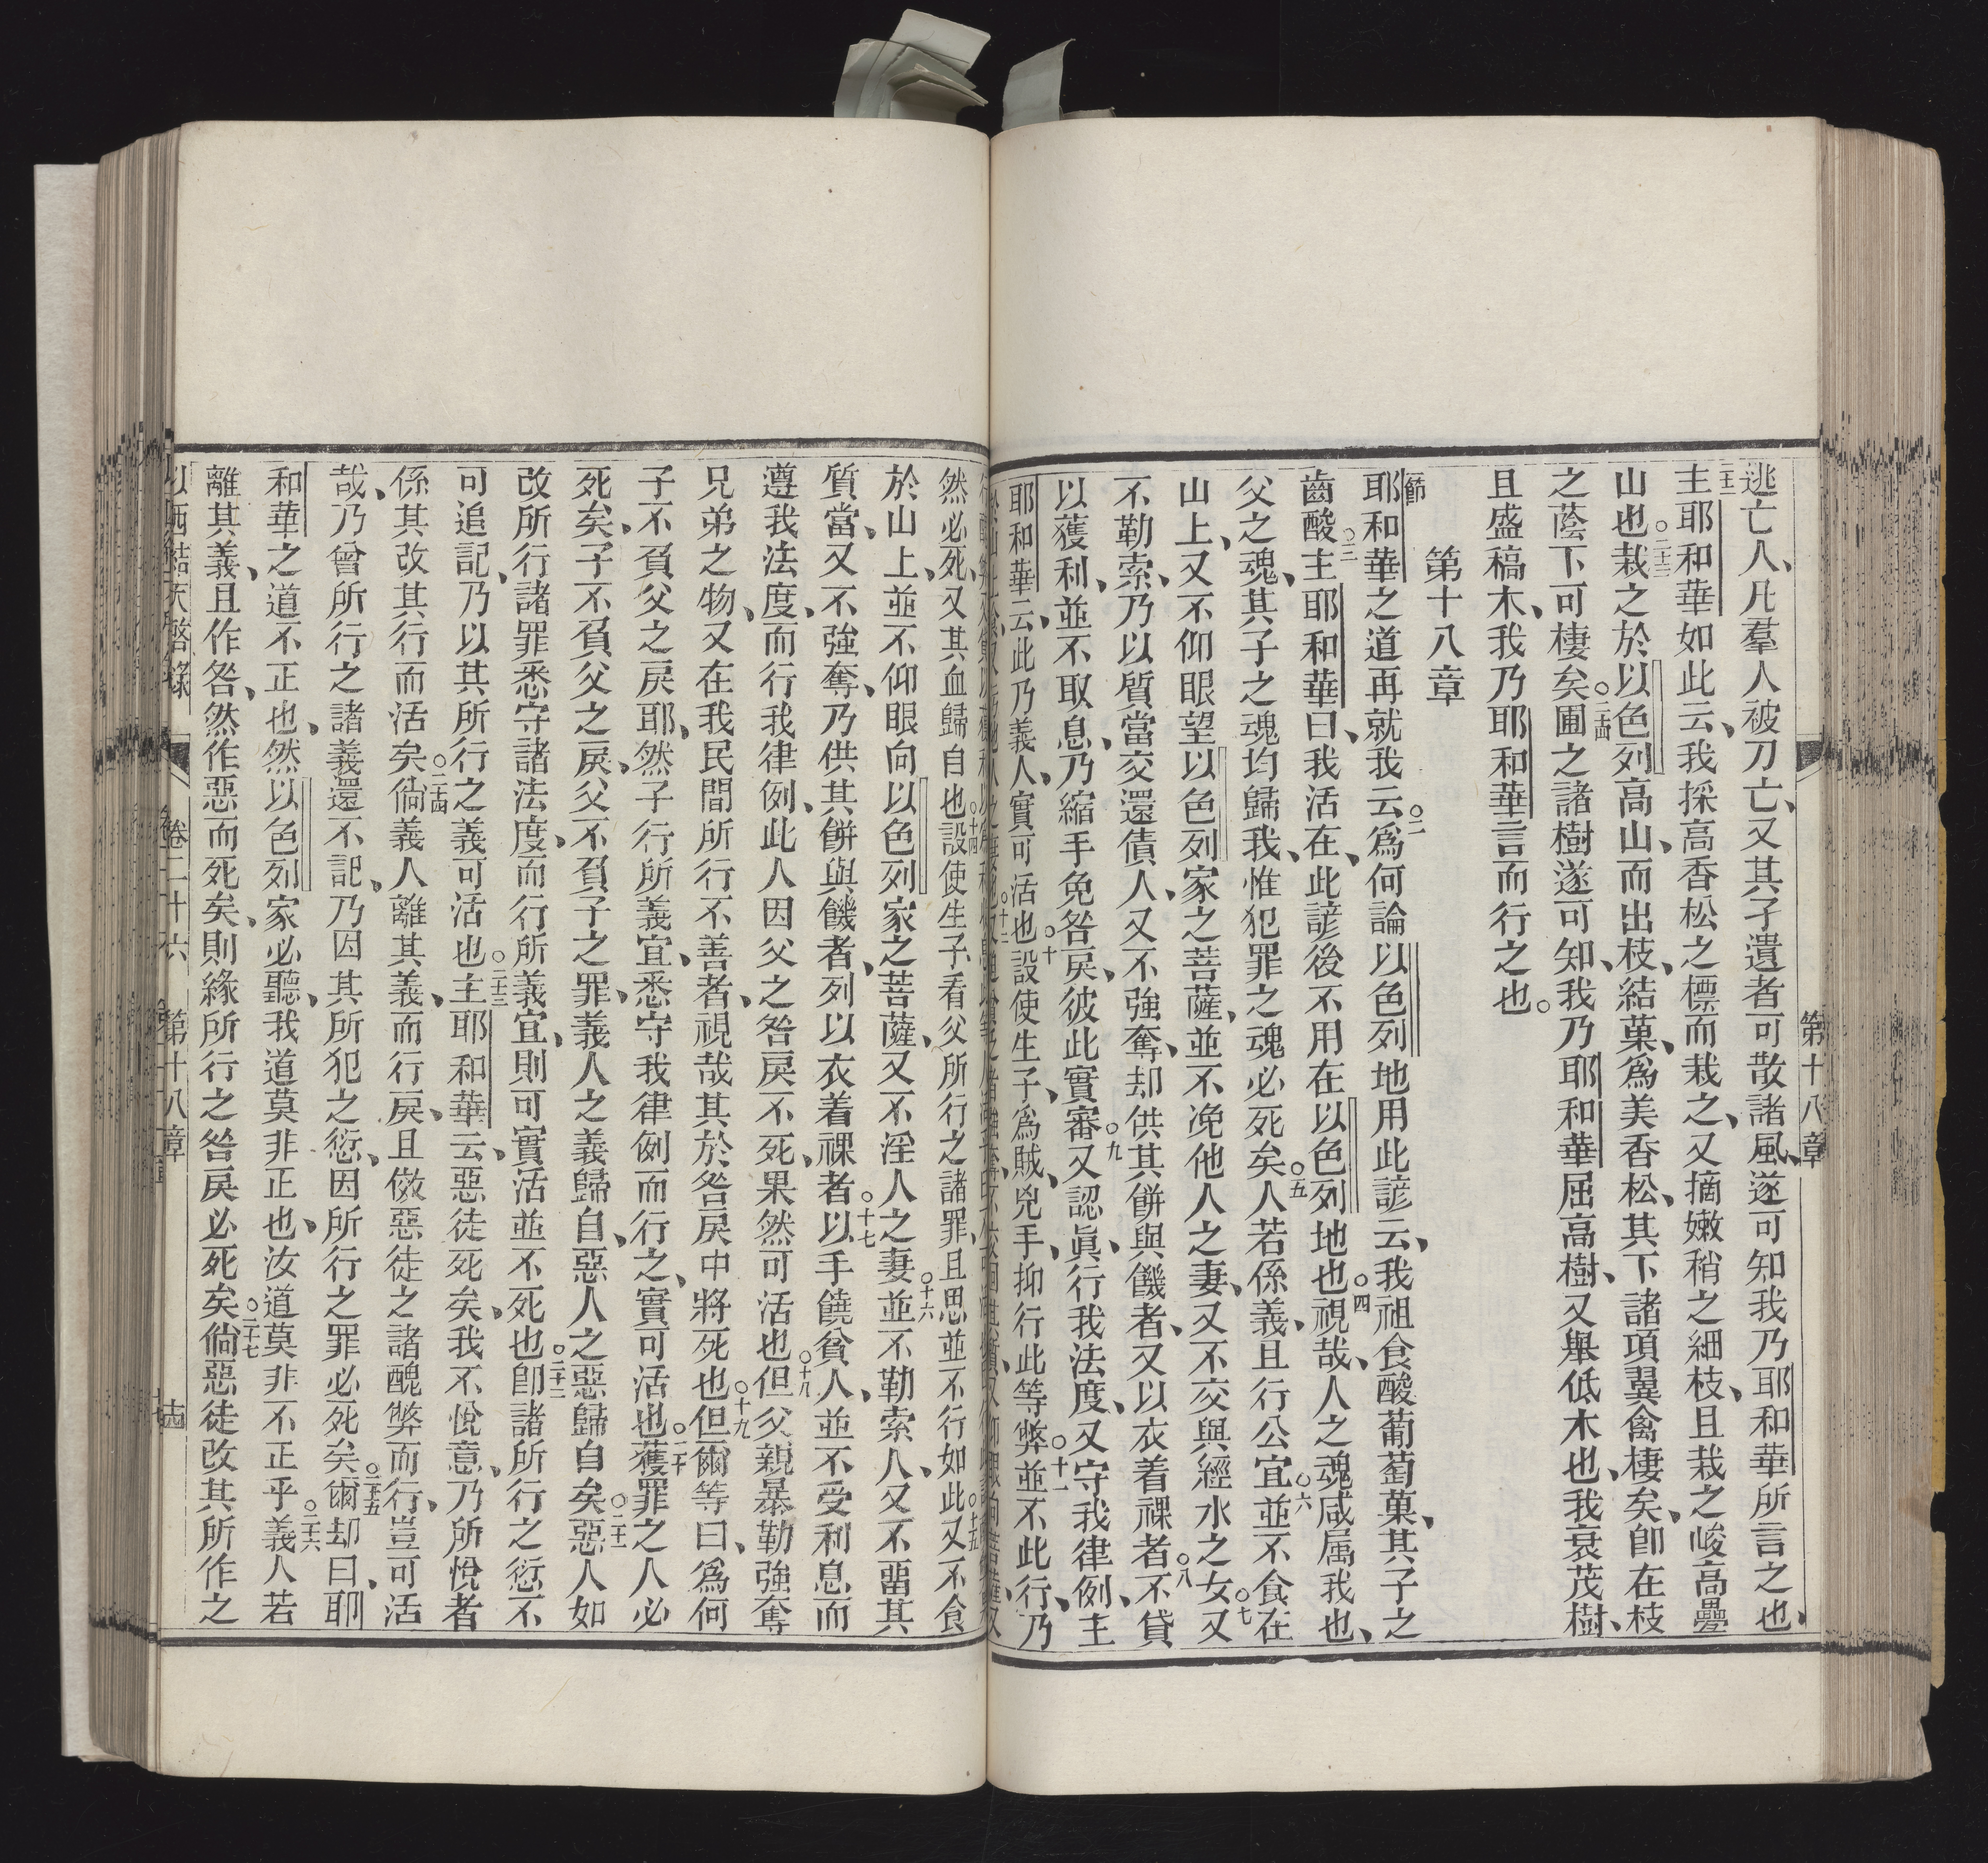 第十八章
逃亡人、凡羣人被刀亡、又其孑遺者可散諸風、遂可知我乃耶和華所言之也、
○二十二主耶和華如此云、我採高香松之標而栽之、又摘嫩稍之細枝、且栽之峻高疊
山也○二十三栽之於以色列高山、而出枝、結菓、爲美香松、其下諸項翼禽棲矣、卽在枝
之蔭下可棲矣○二十四圃之諸樹遂可知、我乃耶和華屈高樹、又舉低木也、我衰茂樹、
且盛稿木、我乃耶和華言而行之也。
第十八章
節耶和華之道再就我云○二爲何論以色列地用此諺云、我祖食酸葡萄菓、其子之
齒酸○三主耶和華曰、我活在、此諺後不用在以色列地也○四視哉、人之魂咸属我也、
父之魂、其子之魂均歸我、惟犯罪之魂必死矣○五人若係義、且行公宜○六並不食在
山上、又不仰眼望以色列家之菩薩、並不凂他人之妻、又不交與經水之女○七又
不勒索、乃以質當交還債人、又不強奪、却供其餅與饑者、又以衣着祼者○八不貸
以獲利、並不取息、乃縮手免咎戾、彼此實審○九又認眞、行我法度、又守我律例、主
耶和華云、此乃義人、實可活也○十設使生子、爲賊、兇手、抑行此等弊○十一並不此行、乃
然必死、又其血歸自也○十四設使生子、看父所行之諸罪、且思並不行如此○十五又不食
於山上、並不仰眼向以色列家之菩薩、又不淫人之妻○十六並不勒索人、又不畱其
質當、又不強奪、乃供其餅與饑者、列以衣着祼者○十七以手饒貧人、並不受利息而
遵我法度、而行我律例、此人因父之咎戾不死、果然可活也○十八但父親暴勒強奪
兄弟之物、又在我民間所行不善者、視哉其於咎戾中將死也○十九但爾等曰、爲何
子不負父之戾耶、然子行所義宜、悉守我律例而行之、實可活也○二十獲罪之人必
死矣、子不負父之戾、父不負子之罪、義人之義歸自、惡人之惡歸自矣○二十一惡人如
改所行諸罪悉守諸法度、而行所義宜、則可實活並不死也○二十二卽諸所行之愆不
可追記、乃以其所行之義可活也○二十三主耶和華云、惡徒死矣、我不悅意、乃所悅者
係其改其行而活矣○二十四倘義人離其義、而行戾、且傚惡徒之諸醜弊而行、豈可活
哉、乃曾所行之諸義還不記、乃因其所犯之愆、因所行之罪必死矣○二十五爾却曰、耶
和華之道不正也、然以色列家必聽、我道莫非正也、汝道莫非不正乎○二十六義人若
離其義、且作咎、然作惡而死矣、則緣所行之咎戾必死矣○二十七倘惡徒改其所作之
以西結天啓錄 卷二十六 第十八章